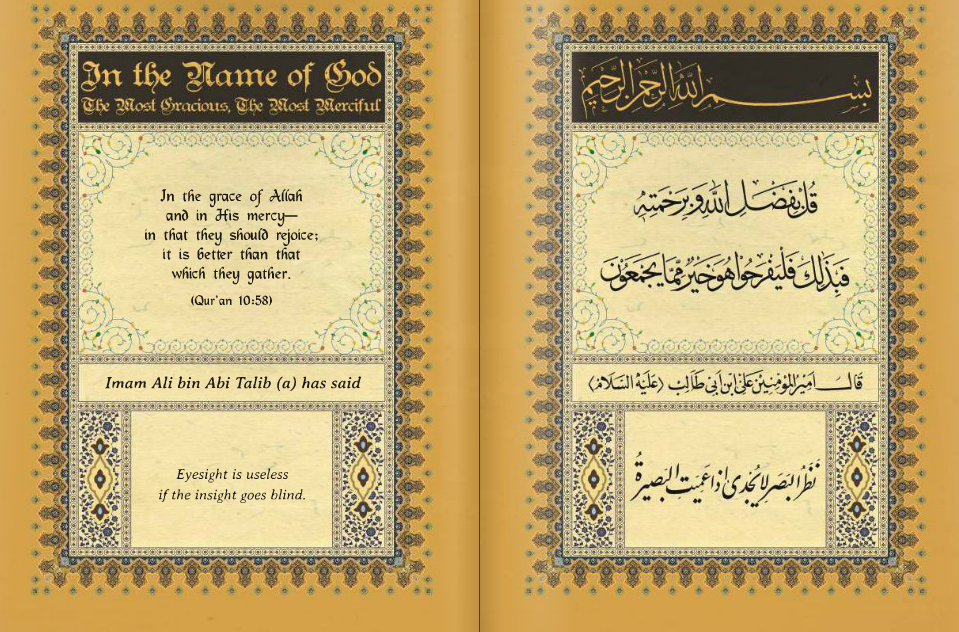 In the Name of God
The Most Gracious, The Most Merciful
In the grace of Allah
and in His mercy—
in that they should rejoice;
it is better than that
which they gather.
(Qur'an 10:58)
Imam Ali bin Abi Talib (a) has said
Eyesight is useless
if the insight goes blind.
بِسْمِ اللَّهِ الرَّحْمَٰنِ الرَّحِيمِ
قُلْ بِفَضْلِ اللَّهِ وَبِرَحْمَتِهِ
فَبِذَٰلِكَ فَلْيَفْرَحُوا هُوَ خَيْرٌ مِّمَّا يَجْمَعُونَ
قَالَ اَمِيرُ الْمُؤْمِنِينَ عَلِيُّ ابْنُ اَبِي طَالِبٍ (عَلَيْهِ السَّلَامُ)
نَظَرُ الْبَصَرِ لَا يُجْدِي اِذَا عَمِيَتِ الْبَصِيرَةُ